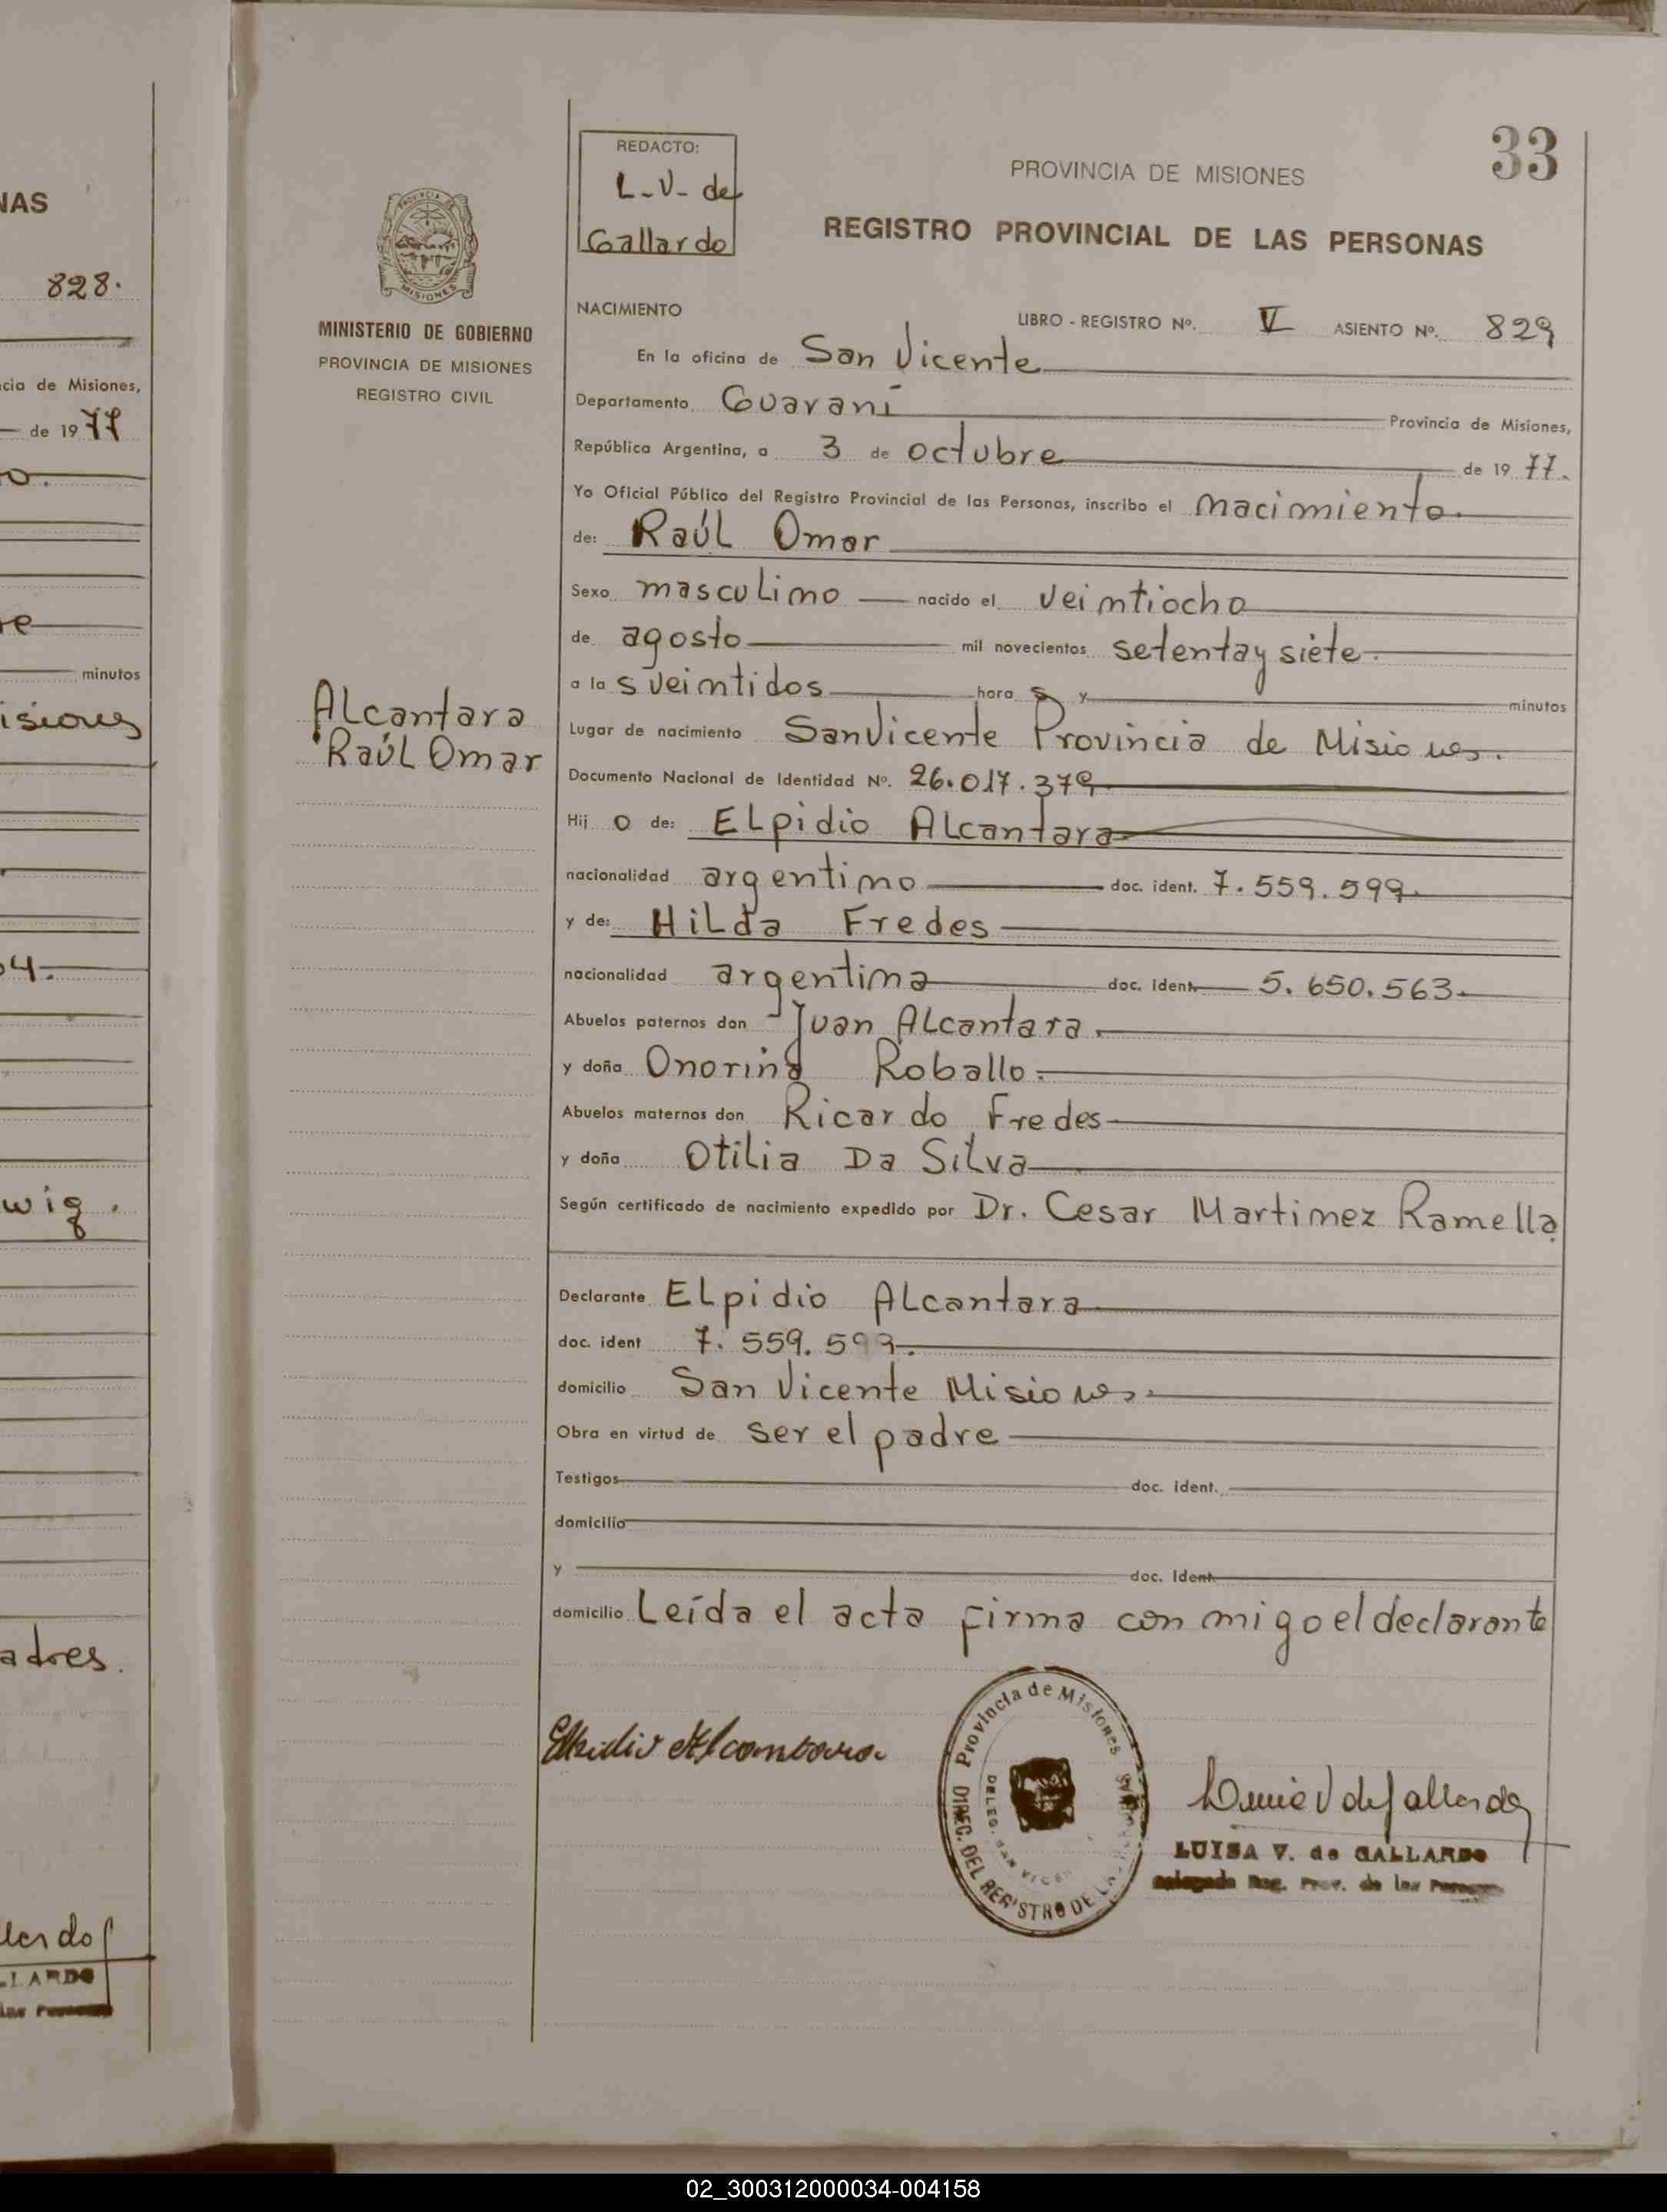 NAS
828.
cia de Misiones,
de 1977
o.
re
minutos
isiones
04.
wig.
adres.
llardo
LLARDO
33
REDACTO:
L-V- de
Gallardo
PROVINCIA DE MISIONES
REGISTRO PROVINCIAL DE LAS PERSONAS
MISIONES
MINISTERIO DE GOBIERNO
PROVINCIA DE MISIONES
REGISTRO CIVIL
Alcantara
Raúl Omar
NACIMIENTO LIBRO - REGISTRO Nº. V ASIENTO Nº. 829
En la oficina de San Vicente
Departamento Guaraní Provincia de Misiones,
República Argentina, a 3 de octubre de 1977.
Yo Oficial Público del Registro Provincial de las Personas, inscribo el nacimiento.
de: Raúl Omar
Sexo masculino nacido el veintiocho
de agosto mil novecientos setenta y siete.
a las veintidos horas y minutos
Lugar de nacimiento San Vicente Provincia de Misiones.
Documento Nacional de Identidad Nº. 26.017.379
Hijo de: Elpidio Alcantara
nacionalidad argentino doc. ident. 7.559.599.
y de: Hilda Fredes
nacionalidad argentina doc. ident. 5.650.563.
Abuelos paternos don Juan Alcantara.
y doña Onorina Roballo.
Abuelos maternos don Ricardo Fredes
y doña Otilia Da Silva
Según certificado de nacimiento expedido por Dr. Cesar Martinez Ramella.
Declarante Elpidio Alcantara
doc. ident 7.559.599.
domicilio San Vicente Misiones.
Obra en virtud de ser el padre
Testigos doc. ident.
domicilio
y doc. Ident.
domicilio Leída el acta firma conmigo el declarante
Elpidio Alcantara
Provincia de Misiones
DIREC. DEL REGISTRO DE
DELEG. SAN VICEN
Luisa V de Gallardo
LUISA V. de GALLARDO
Delegada Reg. Prov. de las Personas
02_300312000034-004158